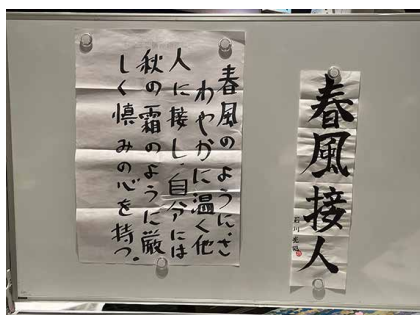 春風接人
春風のように、さ
わやかに温く他
人に接し、自分には
秋の霜のように厳
しく慎みの心を持つ。